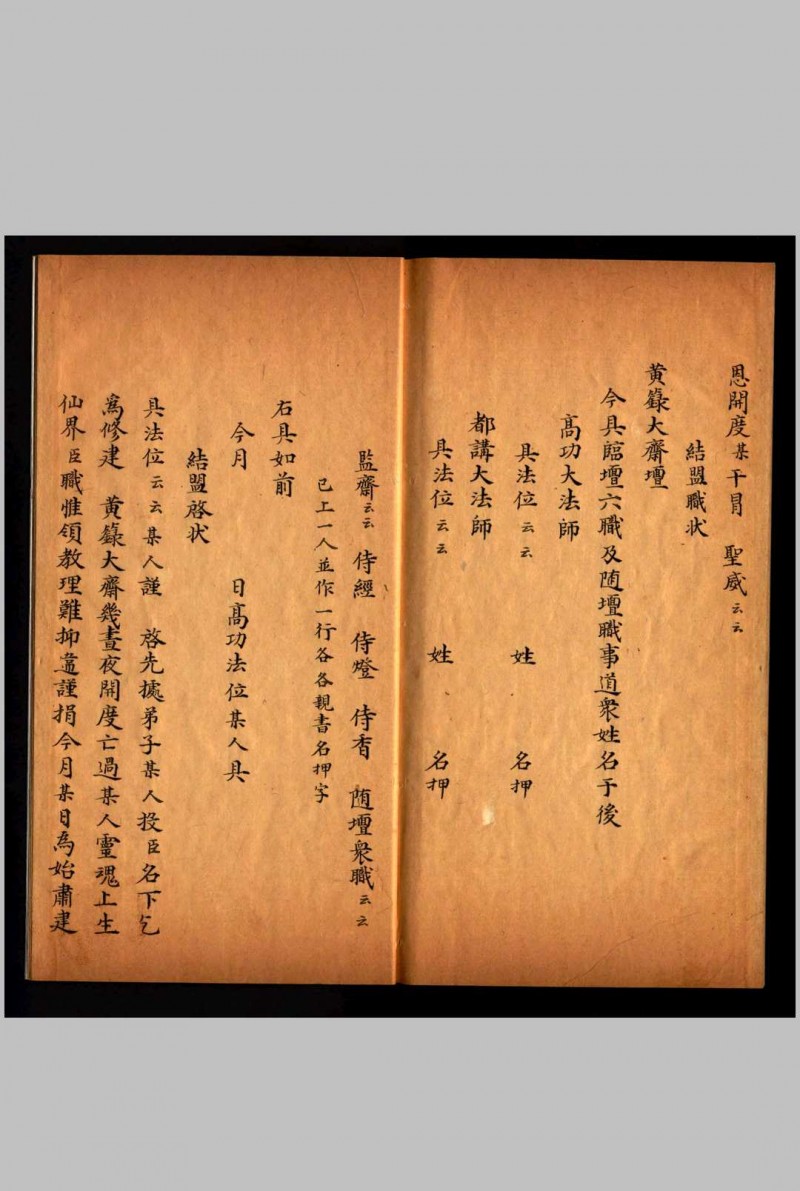 恩開度某干冒　聖威云云
結盟職状
黄籙大齋壇
今具臨壇六職及随壇職事道衆姓名于後
高功大法師
具法位云云　姓　名押
都講大法師
具法位云云　姓　名押
監齋云云　侍經　侍燈　侍香　随壇衆職云云
已上一人並作一行各各親書名押字
右具如前
今月　日高功法位某人具
結盟啓状
具法位云云某人謹　啓先據弟子某人投臣名下乞
為修建　黄籙大齋幾晝夜開度亡過某人靈魂上生
仙界臣職惟領教理難抑違謹捐今月某日為始肅建